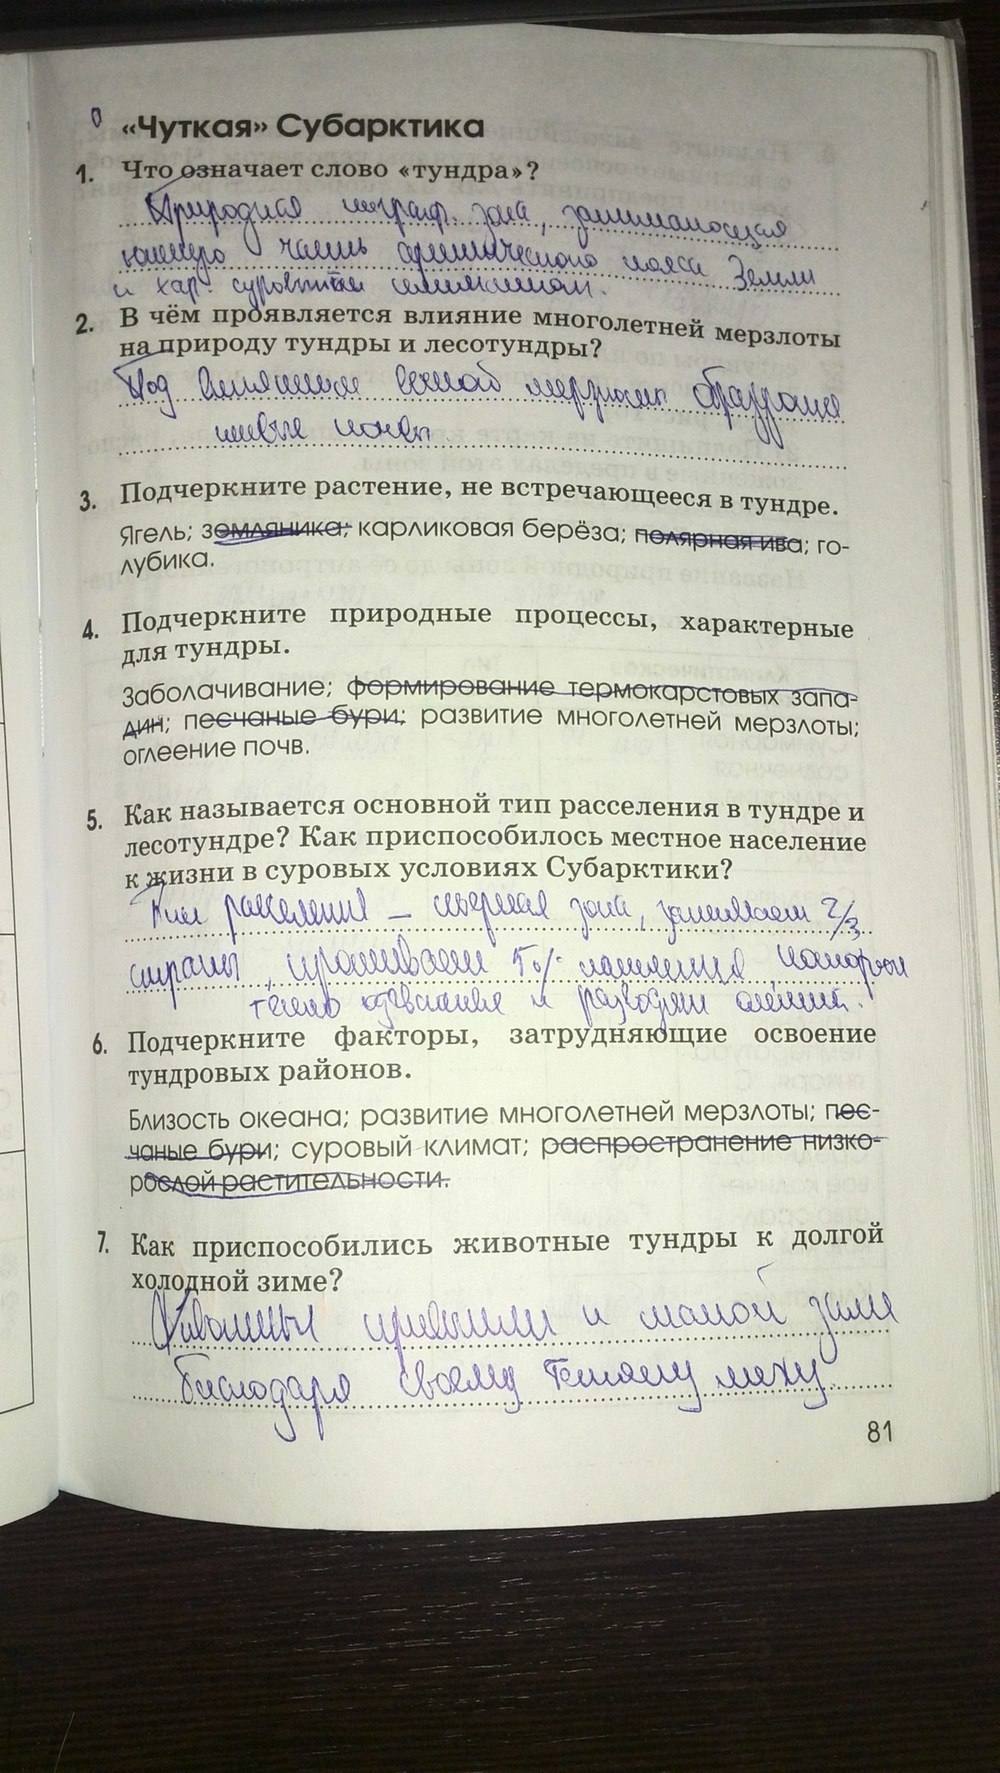 «Чуткая» Субарктика
1. Что означает слово «тундра»?
Природная зона, занимающая
часть арктического пояса Земли
и хар. суровым климатом.
2. В чём проявляется влияние многолетней мерзлоты
на природу тундры и лесотундры?
Под влиянием вечной мерзлоты
3. Подчеркните растение, не встречающееся в тундре.
Ягель; земляника; карликовая берёза; полярная ива; го-
лубика.
4. Подчеркните природные процессы, характерные
для тундры.
Заболачивание; формирование термокарстовых запа-
дин; песчаные бури; развитие многолетней мерзлоты;
оглеение почв.
5. Как называется основной тип расселения в тундре и
лесотундре? Как приспособилось местное население
к жизни в суровых условиях Субарктики?
Тип расселения – северная зона, занимает 2/3
страны, проживает 5% населения которые
тепло и разводят оленей.
6. Подчеркните факторы, затрудняющие освоение
тундровых районов.
Близость океана; развитие многолетней мерзлоты; пес-
чаные бури; суровый климат; распространение низко-
рослой растительности.
7. Как приспособились животные тундры к долгой
холодной зиме?
Животные привыкли к такой зиме
благодаря своему теплому меху
81